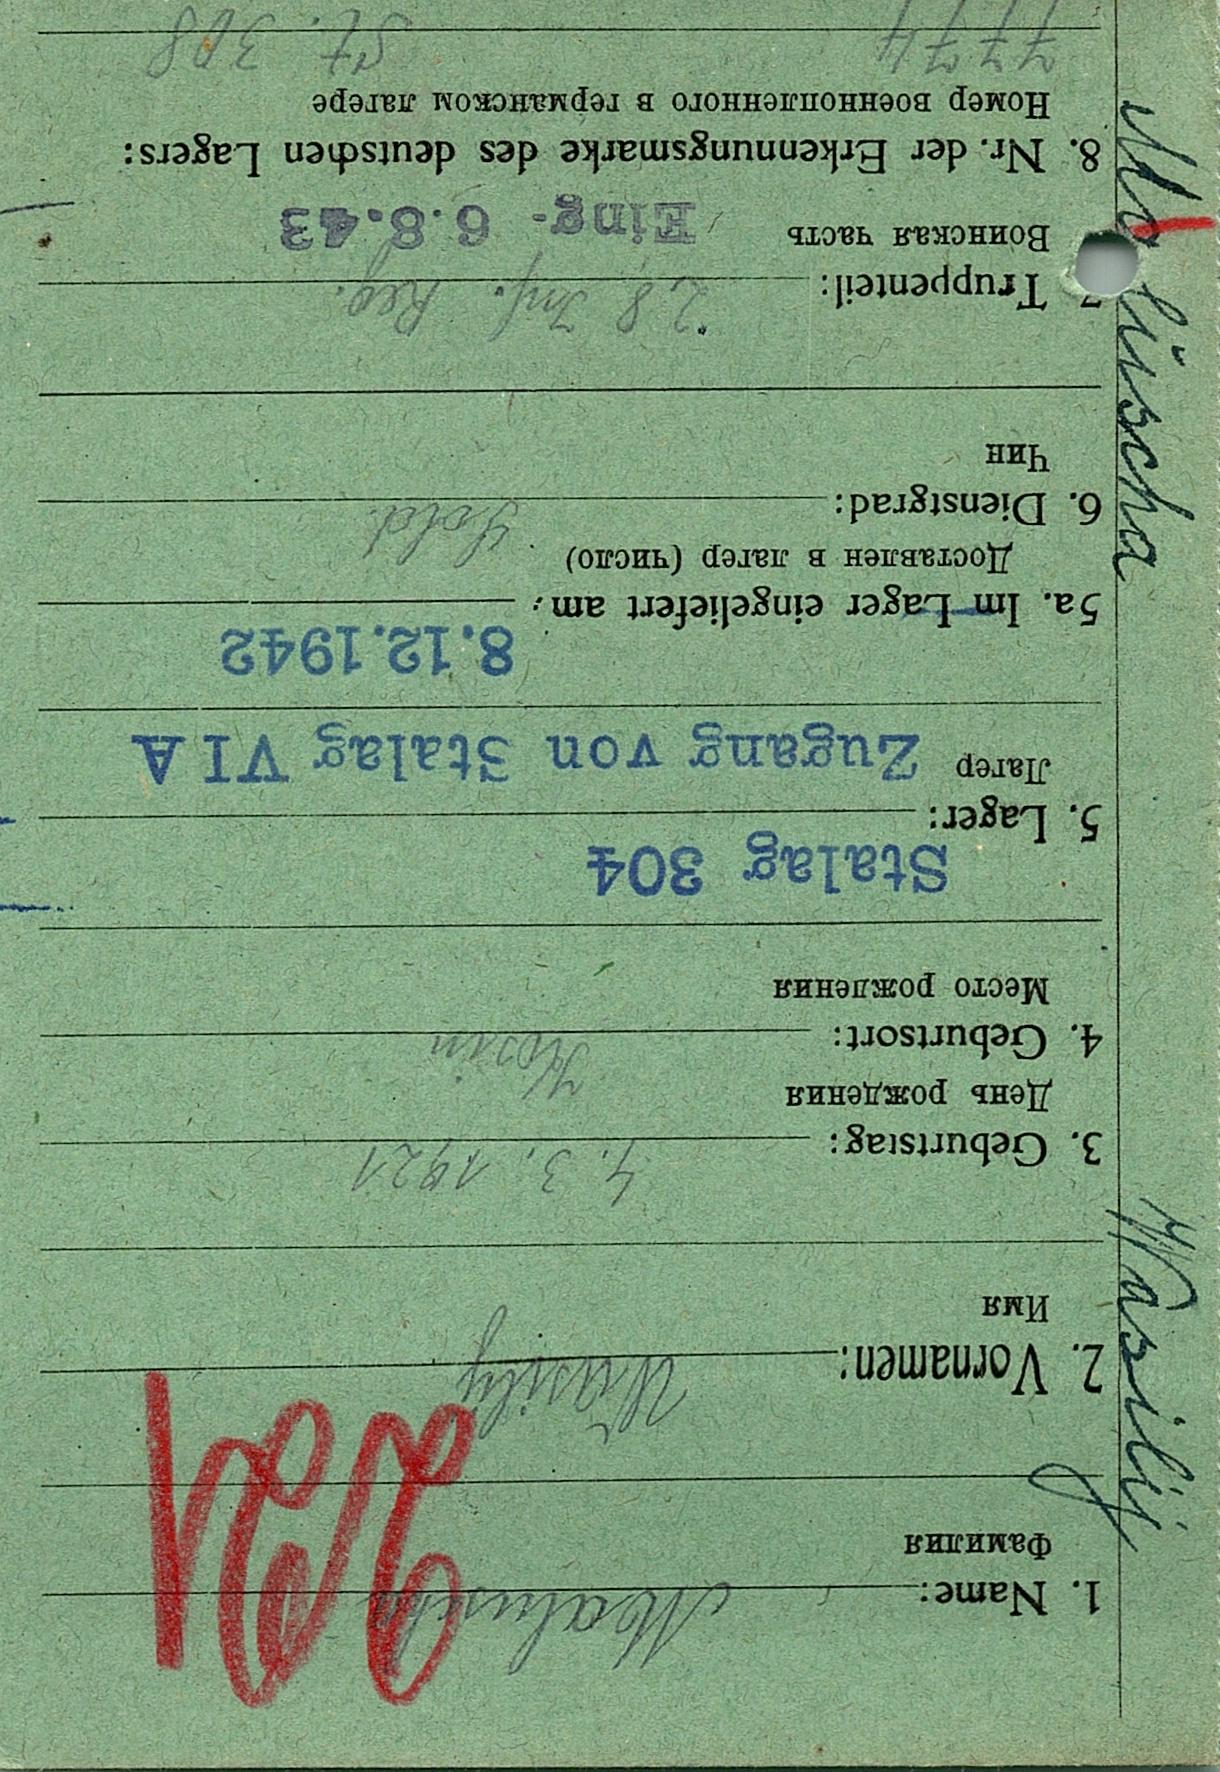 1. Name: Maluscha
Фамилия
2. Vornamen: Wasily
Имя
3. Geburtstag: 4. 3. 1921
День рождения
4. Geburtsort:
Место рождения
Stalag 304
5. Lager:
Лагер Zugang von Stalag VI A
8.12.1942
5a. Im Lager eingeliefert am:
Доставлен в лагер (число)
6. Dienstgrad: Sold.
Чин
7. Truppenteil: 28 Inf. Reg.
Воинская часть Eing. 6.8.43
8. Nr. der Erkennungsmarke des deutschen Lagers:
Номер военнопленного в германском лагере
7774 St. 308
Wasilij